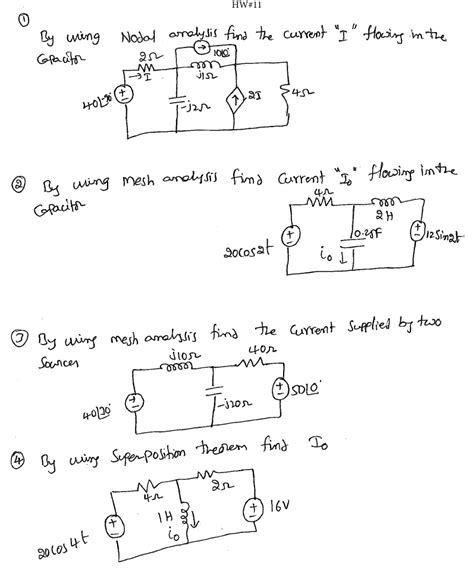 HW#11
① By using Nodal analysis find the current "I" flowing in the
Capacitor
10∠0°
2Ω
→ I
j1Ω
40∠30°
-j2Ω
2I
4Ω
② By using mesh analysis find current "I₀" flowing in the
Capacitor
4Ω
2H
20cos2t
0.25F
i₀ ↓
12sin2t
③ By using mesh analysis find the current supplied by two
Sources
j10Ω
40Ω
40∠30°
-j20Ω
50∠0°
④ By using Superposition theorem find I₀
4Ω
2Ω
1H
i₀
16V
20cos4t